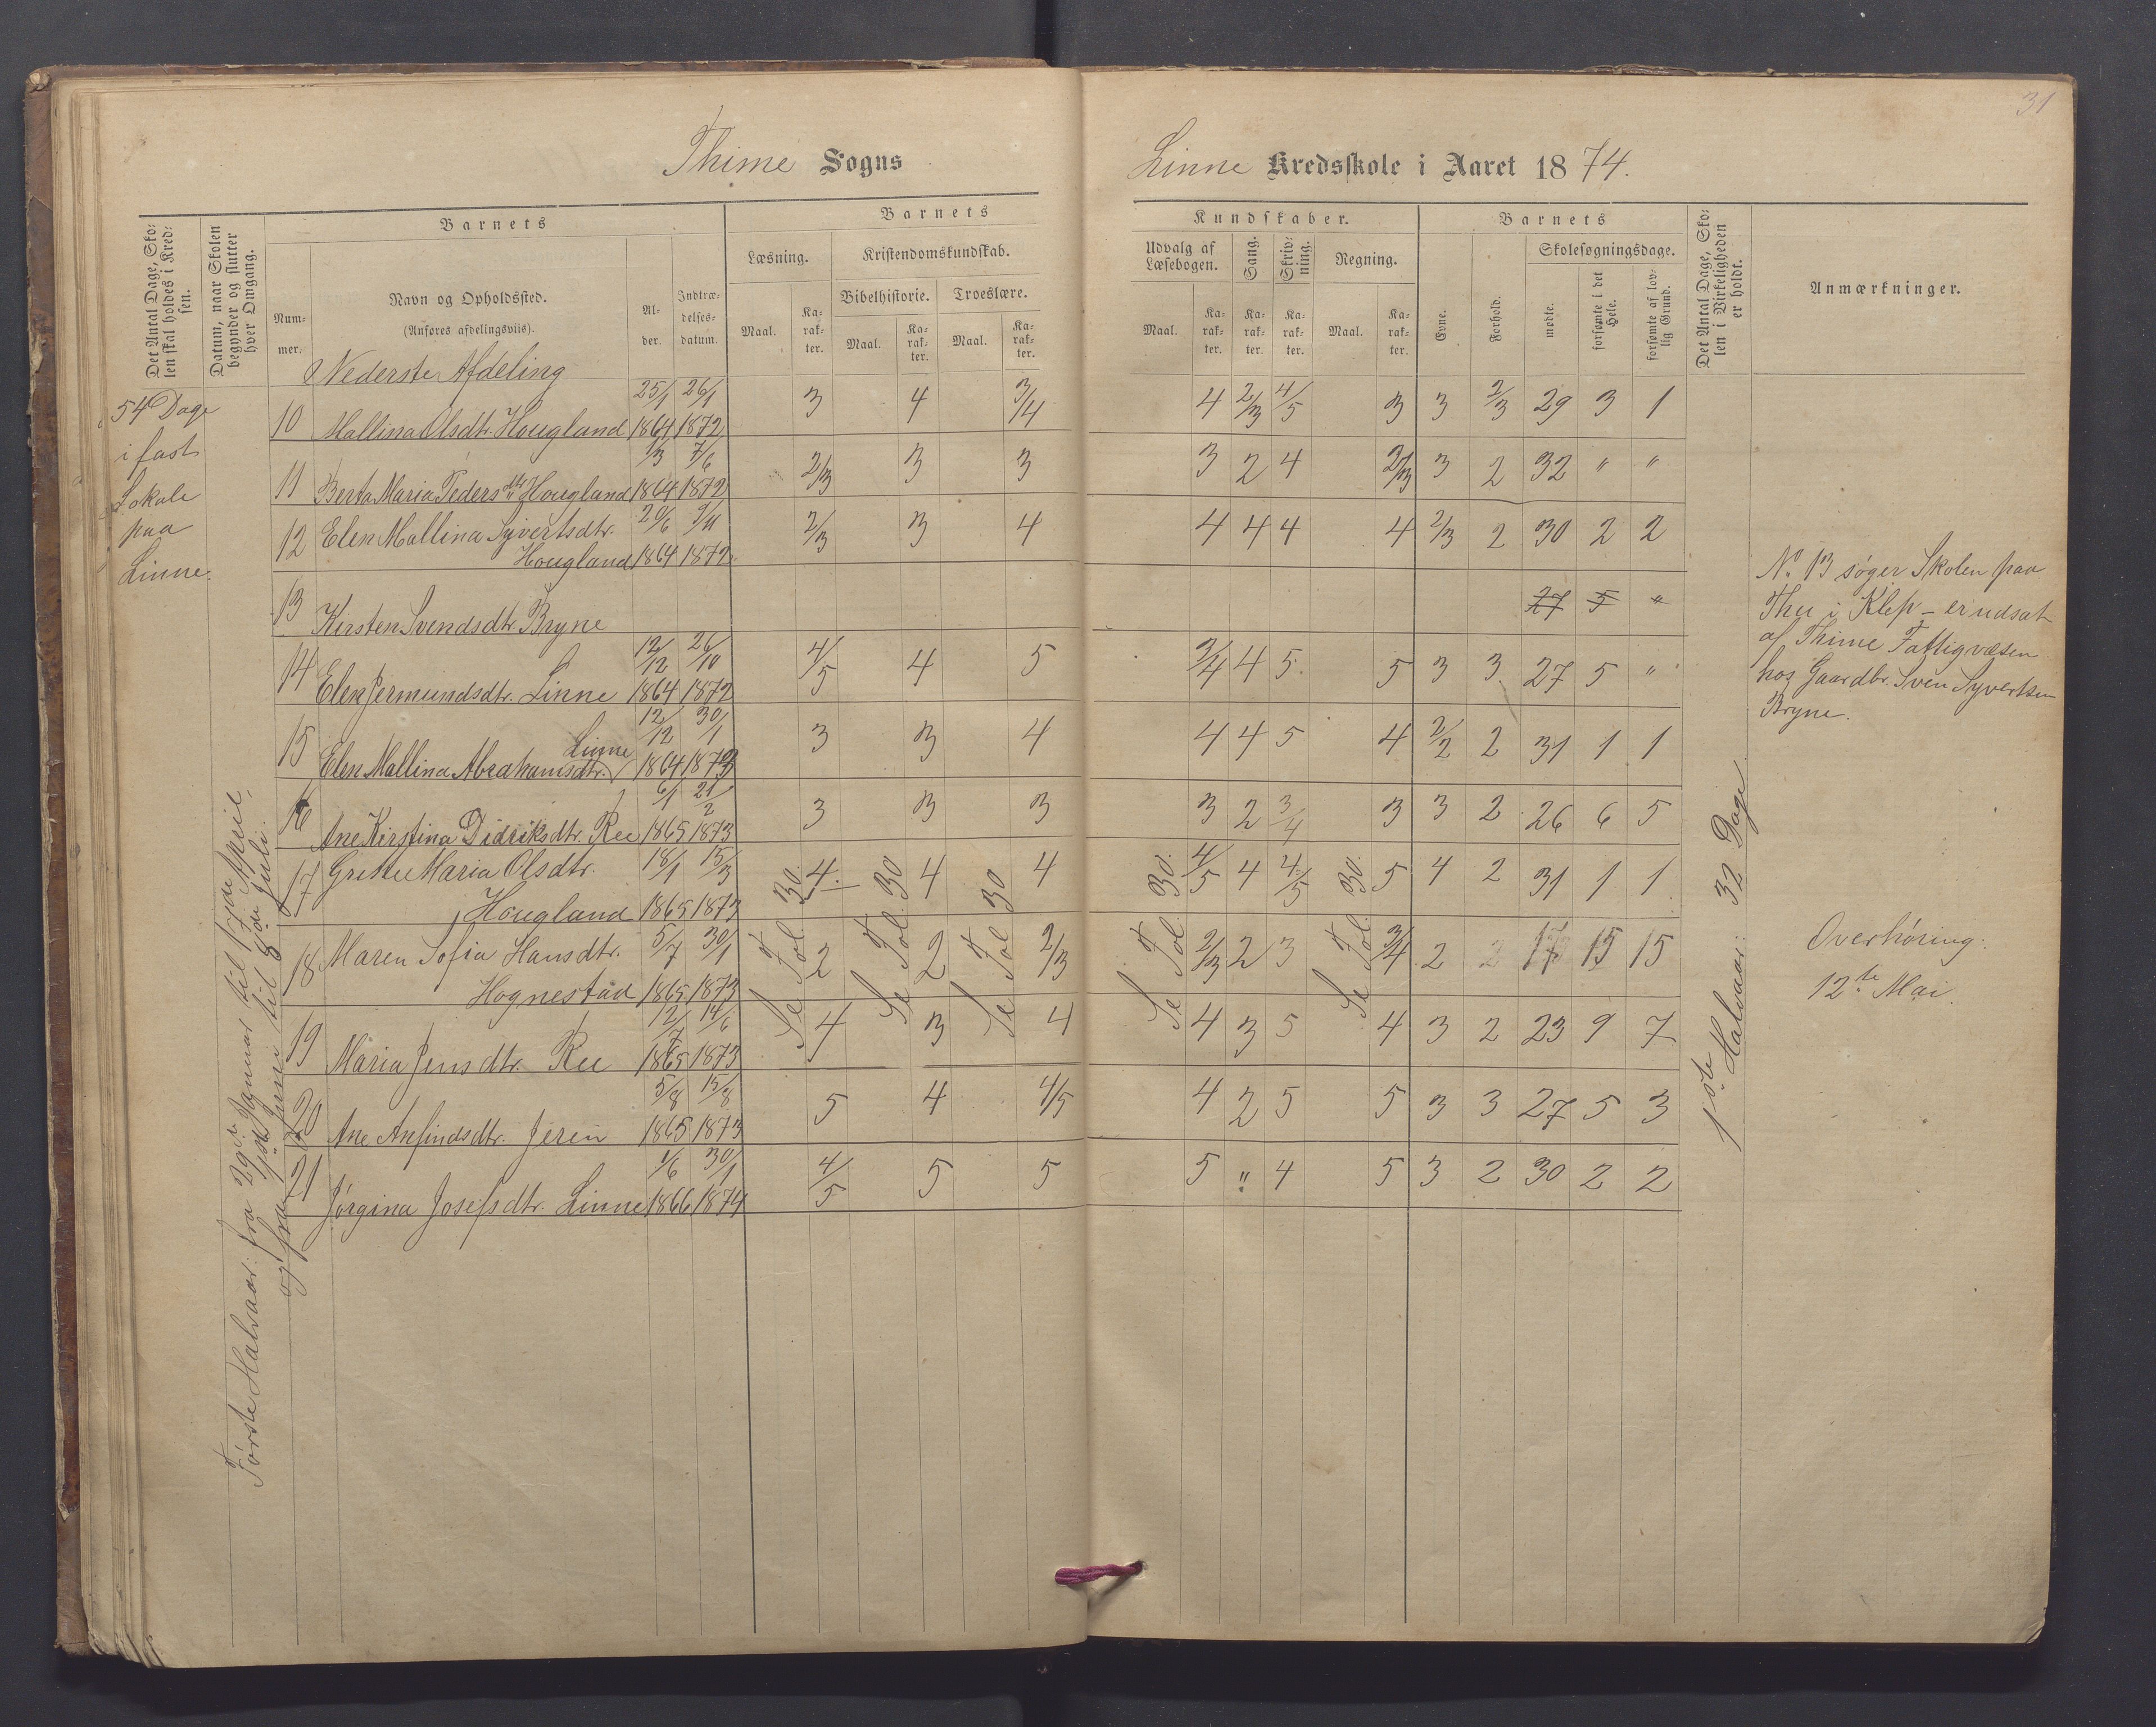 31
Thime Sogns
Linne Kredsskole i Aaret 1874.
Det Antal Dage, Skolen skal holdes i Kredsen.
Datum, naar Skolen begynder og slutter hver Omgang.
Barnets
Nummer.
Navn og Opholdssted.
(Anføres afdelingsviis).
Alder.
Indtrædelsesdatum.
Barnets
Læsning.
Kristendomskundskab.
Bibelhistorie. Troeslære.
Maal. Karakter. Maal. Karakter. Maal. Karakter.
Kundskaber.
Udvalg af Læsebogen. Sang. Skrivning. Regning.
Maal. Karakter. Karakter. Karakter. Maal. Karakter.
Barnets
Evne. Forhold.
Skolesøgningsdage.
mødte. forsømte i det Hele. forsømte af lovlig Grund.
Det Antal Dage, Skolen i Virkeligheden er holdt.
Anmærkninger.
54 Dage
i fast
Lokale
paa
Linne.
Første Halvaar: fra 29de Januar til 17de April,
og fra 1ste Juni til 8de Juli.
Nederste Afdeling
10 Mallina Olsdtr. Hougland 25/1 1864 26/1 1872 3 4 3/4 4 2/3 4/5 3 3 2/3 29 3 1
11 Berta Maria Pedersdtr Hougland 1/3 1864 7/6 1872 2/3 3 3 3 2 4 2/3 3 2 32 " "
12 Elen Mallina Syvertsdtr. Hougland 20/6 1864 9/11 1872 2/3 3 4 4 4 4 4 2/3 2 30 2 2
13 Kirsten Svendsdtr. Bryne 27 5 "
14 Elen Jermundsdtr. Linne 12/12 1864 26/10 1872 4/5 4 5 3/4 4 5 5 3 3 27 5 "
15 Elen Mallina Abrahamsdtr. Linne 12/12 1864 30/1 1873 3 3 4 4 4 5 4 2/2 2 31 1 1
16 Ane Kirstina Didriksdtr. Ree 6/1 1865 21/2 1873 3 3 3 3 2 3/4 3 3 2 26 6 5
17 Grethe Maria Olsdtr. Hougland 18/1 1865 15/3 1873 4 4 4 4/5 4 4/5 5 4 2 31 1 1
18 Maren Sofia Hansdtr. Hognestad 5/7 1865 30/1 1873 2 2 2/3 2/3 2 3 3/4 2 2 17 15 15
19 Maria Jensdtr. Ree 12/7 1865 14/6 1873 4 3 4 4 3 5 4 3 2 23 9 7
20 Ane Anfindsdtr. Jeren 5/8 1865 15/8 1873 5 4 4/5 4 2 5 5 3 3 27 5 3
21 Jørgina Josefsdtr. Linne 1/6 1866 30/1 1874 4/5 5 5 5 " 4 5 3 2 30 2 2
Se Fol. 30.
Se Fol. 30
Se Fol 30
Se Fol. 30.
Se Fol. 30.
1ste Halvaar: 32 Dage.
No. 13 søger Skolen paa
Thu i Klep - er udsat
af Thime Fattigvæsen
hos Gaardbr. Sven Syvertsen
Bryne.
Overhøring:
12te Mai.